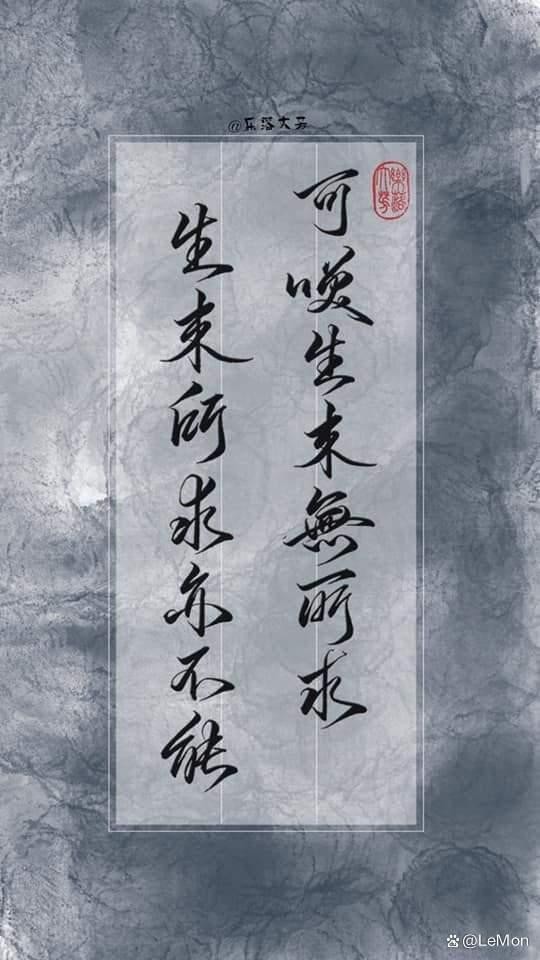 @乐落大芳
可嘆生来無所求
生来所求亦不能
@LeMon